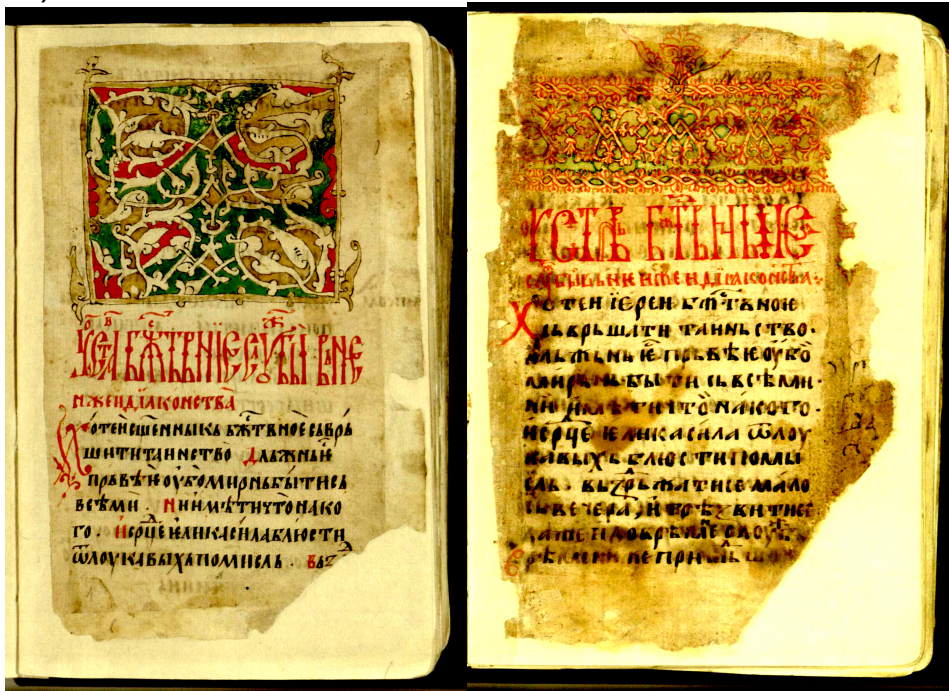 оуставь бж҃ствьніе слоужбы вь не
и же и дїаконства
Хотеи сщ҃енникь бж҃ствное савръ
шити таинство Длъжньѥ
прьвѣѥ оубо мирнь быти сь
всѣми . И ни имѣти что на ко
го . И ср҃це ѥлика сила блюсти
ѿ лоукавыхь помисль . Въз
1
оуставь бжт҃вьниѥ
слоужбы вь нѥи же и дїаконсва
Хотеи їереи бжт҃вноѥ
сьврьшати таиньство .
дльжьнь ѥ прьвѣѥ оубо
мирьнь быти сь всѣми .
ни имѣти что на кого .
и ср҃це ѥлика сила ѿ лоу
кавыхь блюсти помы
сль . вьздрьжати се мало
сь вечера , и трѣзвити се
даже и до